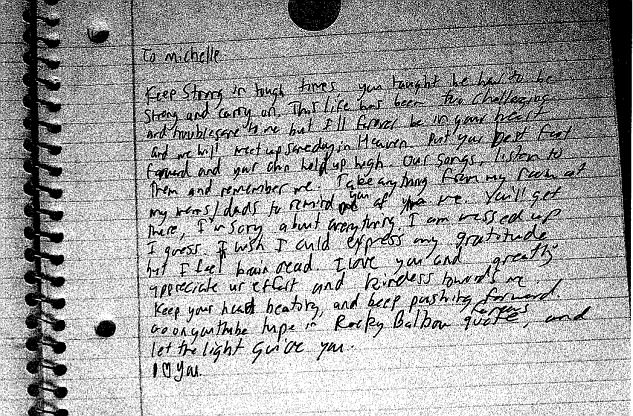 To Michelle
Keep Strong in tough times, you taught be how to be
strong and carry on. This life has been too challenging
and troublesome to me but I'll forever be in your heart
and we will meet up someday in Heaven. Put your best foot
forward and your chin held up high. Our songs, listen to
them and remember me. Take anything from my room at
my moms/dads to remind you of me. You'll get
there, I'm sory about everything I am messed up
I guess. I wish I culd express my gratitude
but I feel brain dead. I love you and greatly
appreciate ur effort and kindess towards me.
Keep your heart beating, and keep pushing forward.
Go on youtube type in Rocky Balboa quote, and
let the light guide you.
I ♡ you.